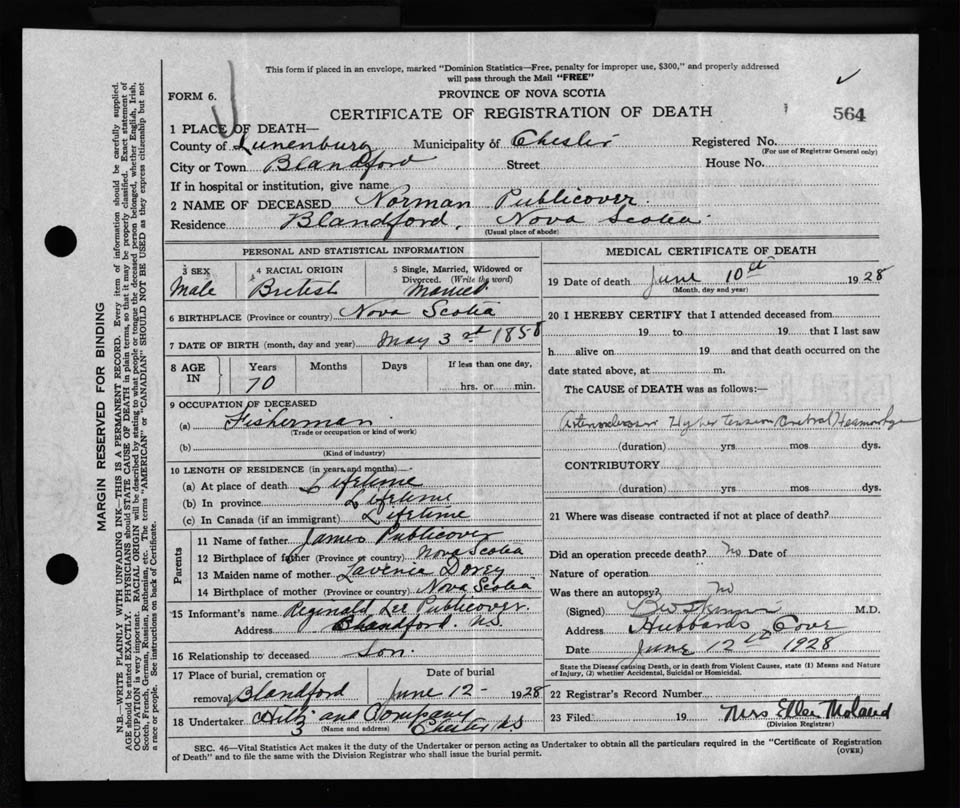 This form if placed in an envelope, marked "Dominion Statistics—Free, penalty for improper use, $300," and properly addressed
will pass through the Mail "FREE"
FORM 6.
PROVINCE OF NOVA SCOTIA
CERTIFICATE OF REGISTRATION OF DEATH
564
1 PLACE OF DEATH—
County of Lunenburg Municipality of Chester Registered No.
(For use of Registrar General only)
City or Town Blandford Street House No.
If in hospital or institution, give name
2 NAME OF DECEASED Norman Publicover.
Residence Blandford, Nova Scotia.
(Usual place of abode)
PERSONAL AND STATISTICAL INFORMATION
3 SEX
Male
4 RACIAL ORIGIN
British
5 Single, Married, Widowed or
Divorced. (Write the word)
Married
6 BIRTHPLACE (Province or country) Nova Scotia
7 DATE OF BIRTH (month, day and year) May 3rd 1858
8 AGE IN
Years
70
Months
Days
If less than one day,
hrs. or min.
9 OCCUPATION OF DECEASED
(a) Fisherman
(Trade or occupation or kind of work)
(b)
(Kind of industry)
10 LENGTH OF RESIDENCE (in years and months)
(a) At place of death Lifetime
(b) In province Lifetime
(c) In Canada (if an immigrant) Lifetime
Parents
11 Name of father James Publicover
12 Birthplace of father (Province or country) Nova Scotia
13 Maiden name of mother Lavenia Dorey
14 Birthplace of mother (Province or country) Nova Scotia
15 Informant's name Reginald Lee Publicover.
Address Blandford. N.S.
16 Relationship to deceased Son.
17 Place of burial, cremation or Date of burial
removal Blandford June 12- 1928
18 Undertaker Hiltz and Company
3 (Name and address) Chester N.S
MEDICAL CERTIFICATE OF DEATH
19 Date of death June 10th 1928
(Month, day and year)
20 I HEREBY CERTIFY that I attended deceased from
19 to 19 that I last saw
h alive on 19 and that death occurred on the
date stated above, at m.
The CAUSE of DEATH was as follows:—
Higher tension Cerebral Hemorrhage
(duration) yrs mos dys.
CONTRIBUTORY
(duration) yrs mos dys.
21 Where was disease contracted if not at place of death?
Did an operation precede death? No Date of
Nature of operation
Was there an autopsy? no
(Signed) M.D.
Address Hubbards Cove
Date June 12th 1928
State the Disease causing Death, or in death from Violent Causes, state (1) Means and Nature
of Injury, (2) whether Accidental, Suicidal or Homicidal.
22 Registrar's Record Number
23 Filed 19 Mrs Ellen
(Division Registrar)
SEC. 46—Vital Statistics Act makes it the duty of the Undertaker or person acting as Undertaker to obtain all the particulars required in the "Certificate of Registration
of Death" and to file the same with the Division Registrar who shall issue the burial permit.
(OVER)
MARGIN RESERVED FOR BINDING
N.B.—WRITE PLAINLY WITH UNFADING INK—THIS IS A PERMANENT RECORD. Every item of information should be carefully supplied.
AGE should be stated EXACTLY. PHYSICIANS should STATE CAUSE OF DEATH in plain terms, so that it may be properly classified. Exact statement of
OCCUPATION is very important. RACIAL ORIGIN will be described by stating to what people or tongue the deceased person belonged, whether English, Irish,
Scotch, French, German, Russian, Ruthenian, etc. The terms "AMERICAN" or "CANADIAN" SHOULD NOT BE USED as they express citizenship but not
a race or people. See instructions on back of Certificate.